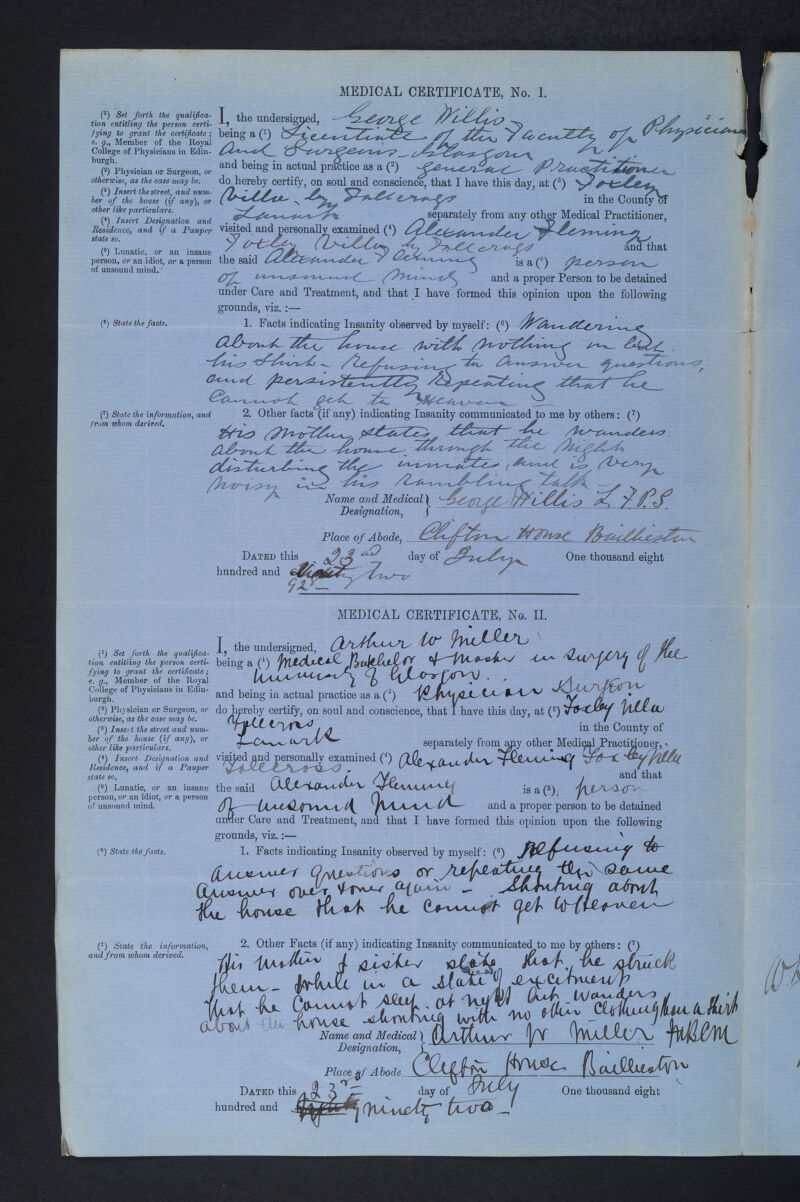 MEDICAL CERTIFICATE, No. I.
(¹) Set forth the qualifica-
tion entitling the person certi-
fying to grant the certificate;
e. g., Member of the Royal
College of Physicians in Edin-
burgh.
(²) Physician or Surgeon, or
otherwise, as the case may be.
(³) Insert the street, and num-
ber of the house (if any), or
other like particulars.
(⁴) Insert Designation and
Residence, and if a Pauper
state so.
(⁵) Lunatic, or an insane
person, or an idiot, or a person
of unsound mind.
I, the undersigned, George Willis
being a (¹) Licentiate of the Faculty of Physicians
and Surgeons Glasgow
and being in actual practice as a (²) general Practitioner
do hereby certify, on soul and conscience, that I have this day, at (³) Foxley
Villa by Tollcross in the County of
Lanark separately from any other Medical Practitioner,
visited and personally examined (⁴) Alexander Fleming
Foxley Villa by Tollcross and that
the said Alexander Fleming is a (⁵) person
of unsound mind and a proper Person to be detained
under Care and Treatment, and that I have formed this opinion upon the following
grounds, viz. :—
(⁶) State the facts.
1. Facts indicating Insanity observed by myself: (⁶) Wandering
about the house with nothing on but
his shirt – Refusing to answer questions,
and persistently repeating that he
cannot get to Heaven
(⁷) State the information, and
from whom derived.
2. Other facts (if any) indicating Insanity communicated to me by others: (⁷)
His mother states that he wanders
about the house through the night
disturbing the inmates, and is very
noisy in his rambling talk
Name and Medical Designation, George Willis L.F.P.S.
Place of Abode, Clifton House Baillieston
DATED this 23rd day of July One thousand eight
hundred and eighty two
92 –
MEDICAL CERTIFICATE, No. II.
(¹) Set forth the qualifica-
tion entitling the person certi-
fying to grant the certificate;
e. g., Member of the Royal
College of Physicians in Edin-
burgh.
(²) Physician or Surgeon, or
otherwise, as the case may be.
(³) Insert the street and num-
ber of the house (if any), or
other like particulars.
(⁴) Insert Designation and
Residence, and if a Pauper
state so.
(⁵) Lunatic, or an insane
person, or an idiot, or a person
of unsound mind.
I, the undersigned, Arthur W Miller
being a (¹) Medical Bachelor & Master in Surgery of the
University of Glasgow.
and being in actual practice as a (²) Physician Surgeon
do hereby certify, on soul and conscience, that I have this day, at (³) Foxley Villa
Tollcross in the County of
Lanark separately from any other Medical Practitioner,
visited and personally examined (⁴) Alexander Fleming Foxley Villa
Tollcross. and that
the said Alexander Fleming is a (⁵), person
of unsound mind and a proper person to be detained
under Care and Treatment, and that I have formed this opinion upon the following
grounds, viz. :—
(⁶) State the facts.
1. Facts indicating Insanity observed by myself: (⁶) Refusing to
answer questions or repeating the same
answer over & over again – Shouting about
the house that he cannot get to Heaven
(⁷) State the information,
and from whom derived.
2. Other Facts (if any) indicating Insanity communicated to me by others: (⁷)
His mother & sister state that he struck
them – while in a state of excitement
that he cannot sleep at night but wanders
about the house shouting with no other clothing than a shirt
Name and Medical Designation, Arthur W Miller MBCM
Place of Abode Clifton House Baillieston
DATED this 23rd day of July One thousand eight
hundred and eighty ninety two –